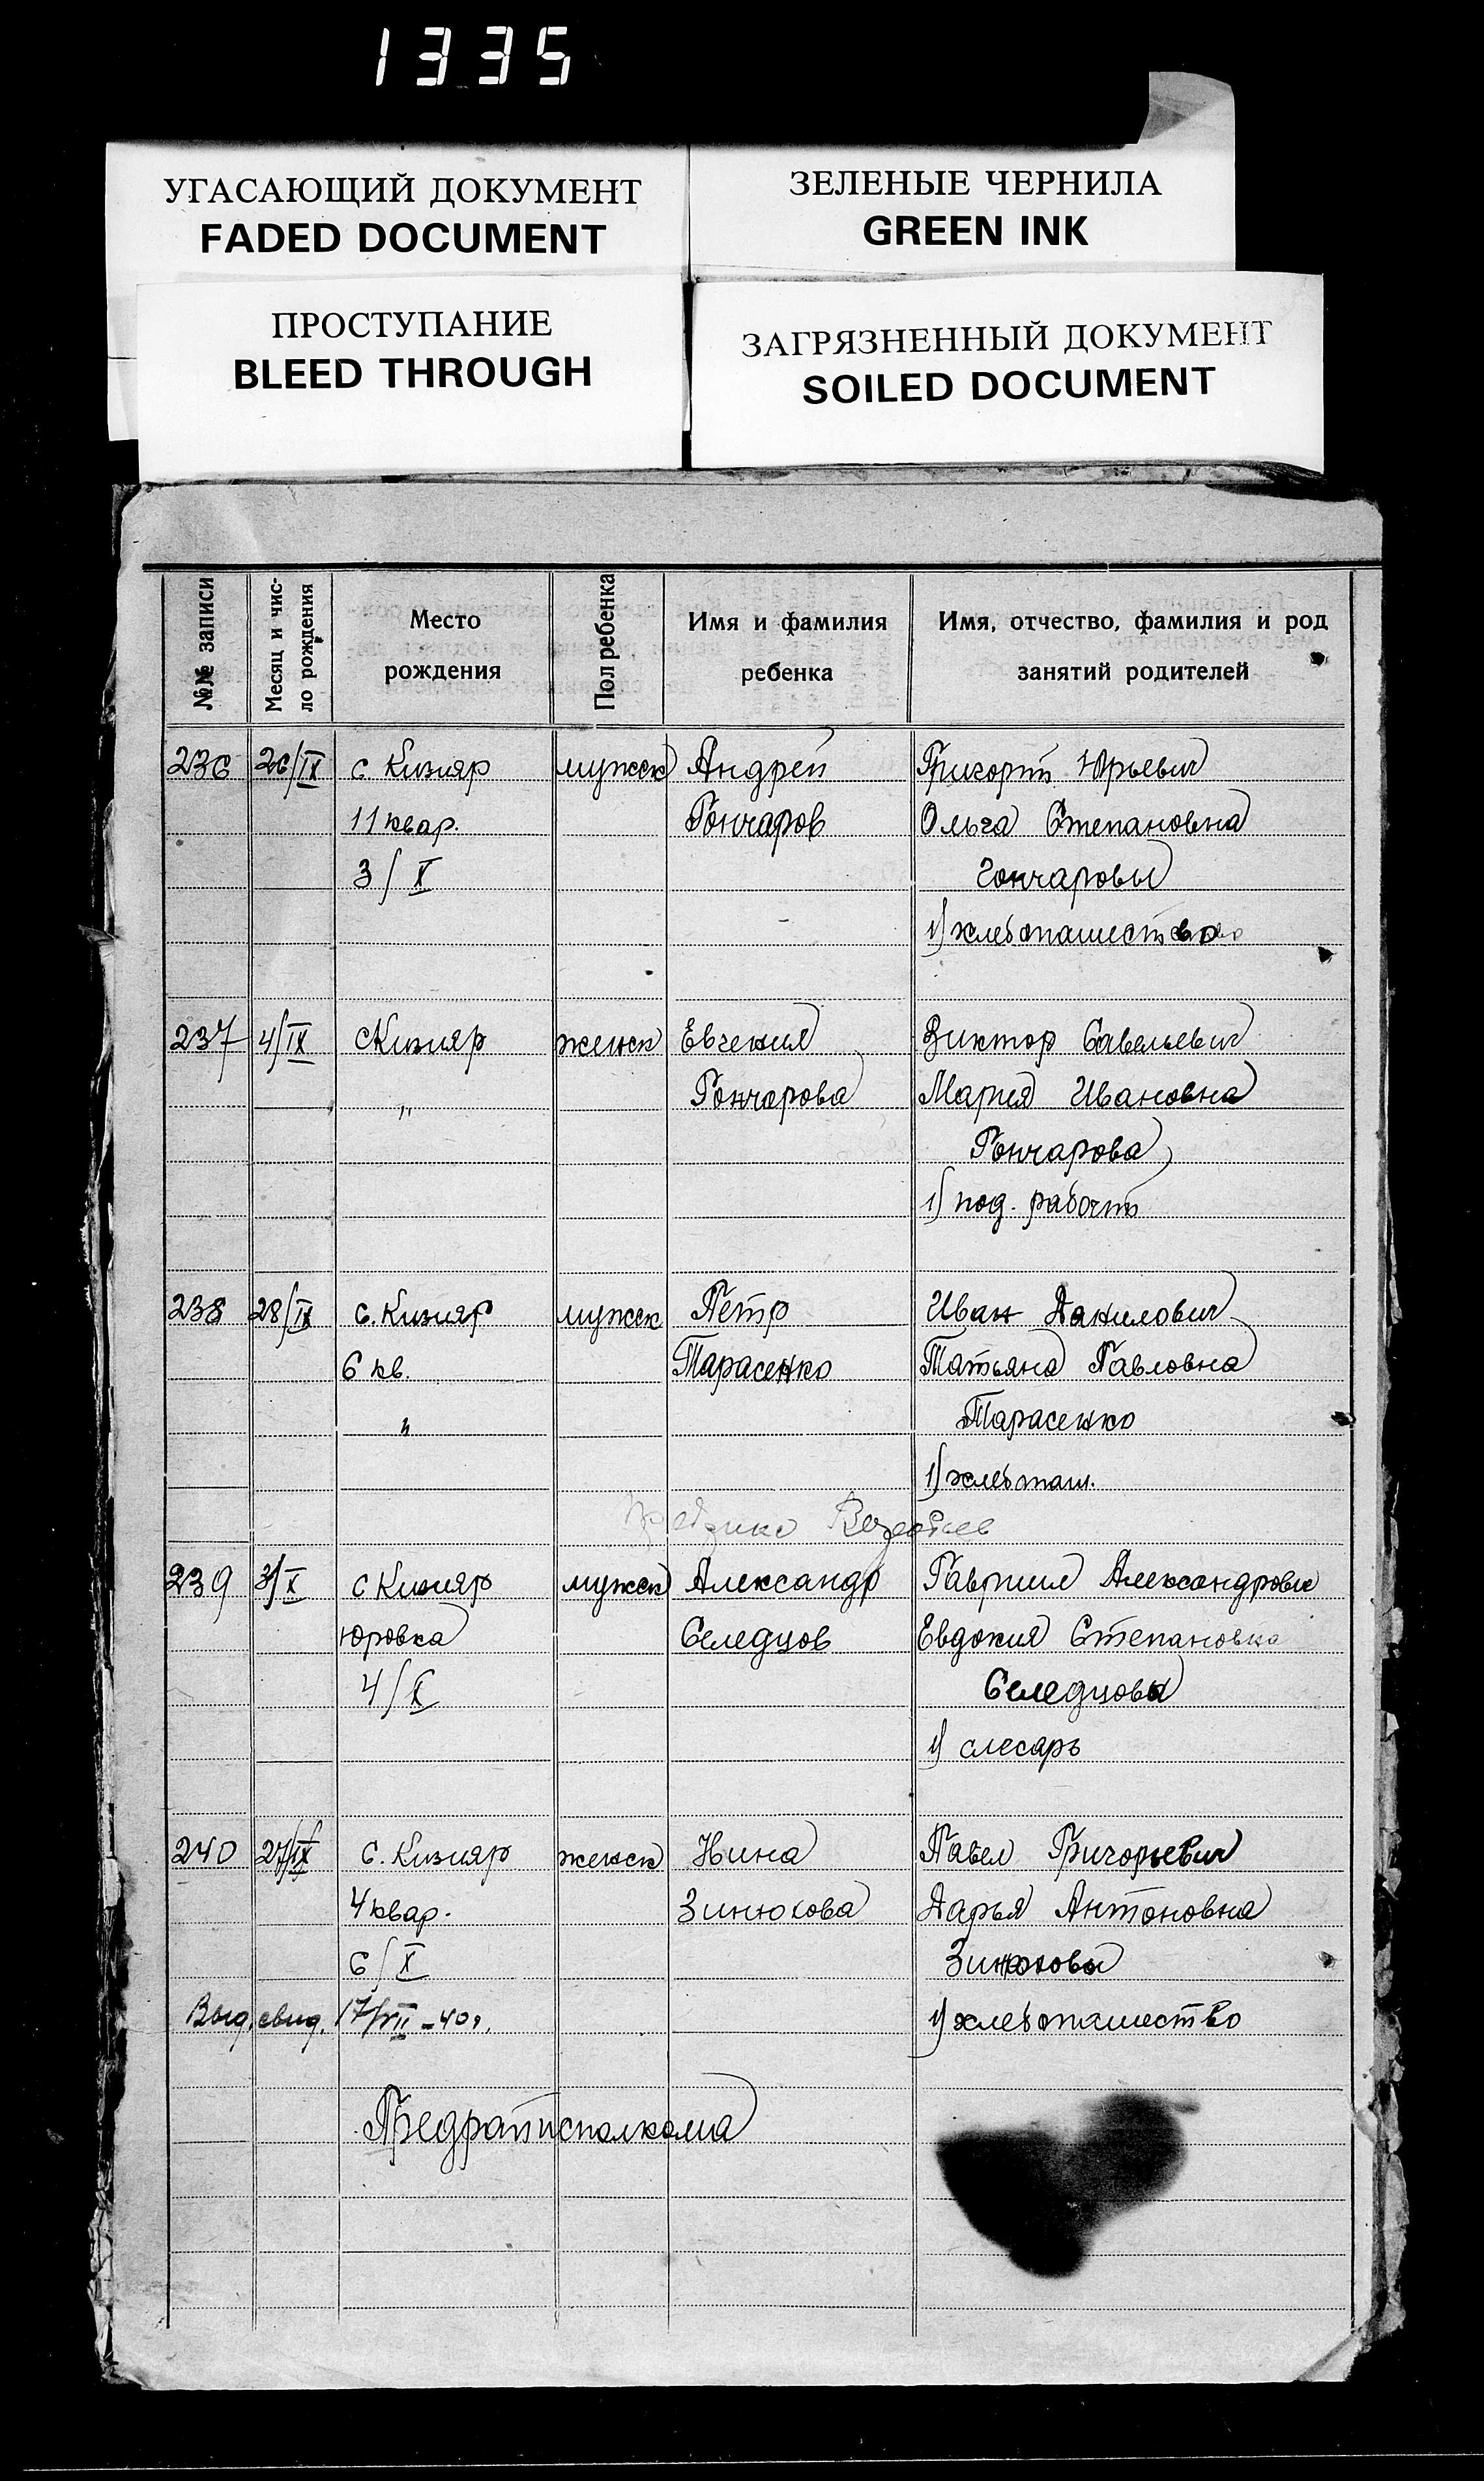 1335
УГАСАЮЩИЙ ДОКУМЕНТ
FADED DOCUMENT
ЗЕЛЕНЫЕ ЧЕРНИЛА
GREEN INK
ПРОСТУПАНИЕ
BLEED THROUGH
ЗАГРЯЗНЕННЫЙ ДОКУМЕНТ
SOILED DOCUMENT
№№ записи
Месяц и чис-
ло рождения
Место
рождения
Пол ребенка
Имя и фамилия
ребенка
Имя, отчество, фамилия и род
занятий родителей
236 26/IX с Кизияр мужск Андрей Григорий Юрьевич
11 квар. Гончаров Ольга Степановна
3/X Гончаровы
1) хлебопашество
237 4/IX с Кизияр женск Евгения Виктор Савельевич
" Гончарова Мария Ивановна
Гончарова
1) под. работ
238 28/IX с. Кизияр мужск Петр Иван Данилович
6 кв. Тарасенко Татьяна Павловна
" Тарасенко
1) хлебопаш.
239 3/X с Кизияр мужск Александр Гавриил Александрович
Юровка Селедцов Евдокия Степановна
4/X Селедцовы
1) слесарь
240 27/IX с. Кизияр женск Нина Павел Григорьевич
4 квар. Зинюкова Дарья Антоновна
6/X Зинюковы
Выд. свид. 17/VII-40г. 1) хлебопашество
Предрайисполкома